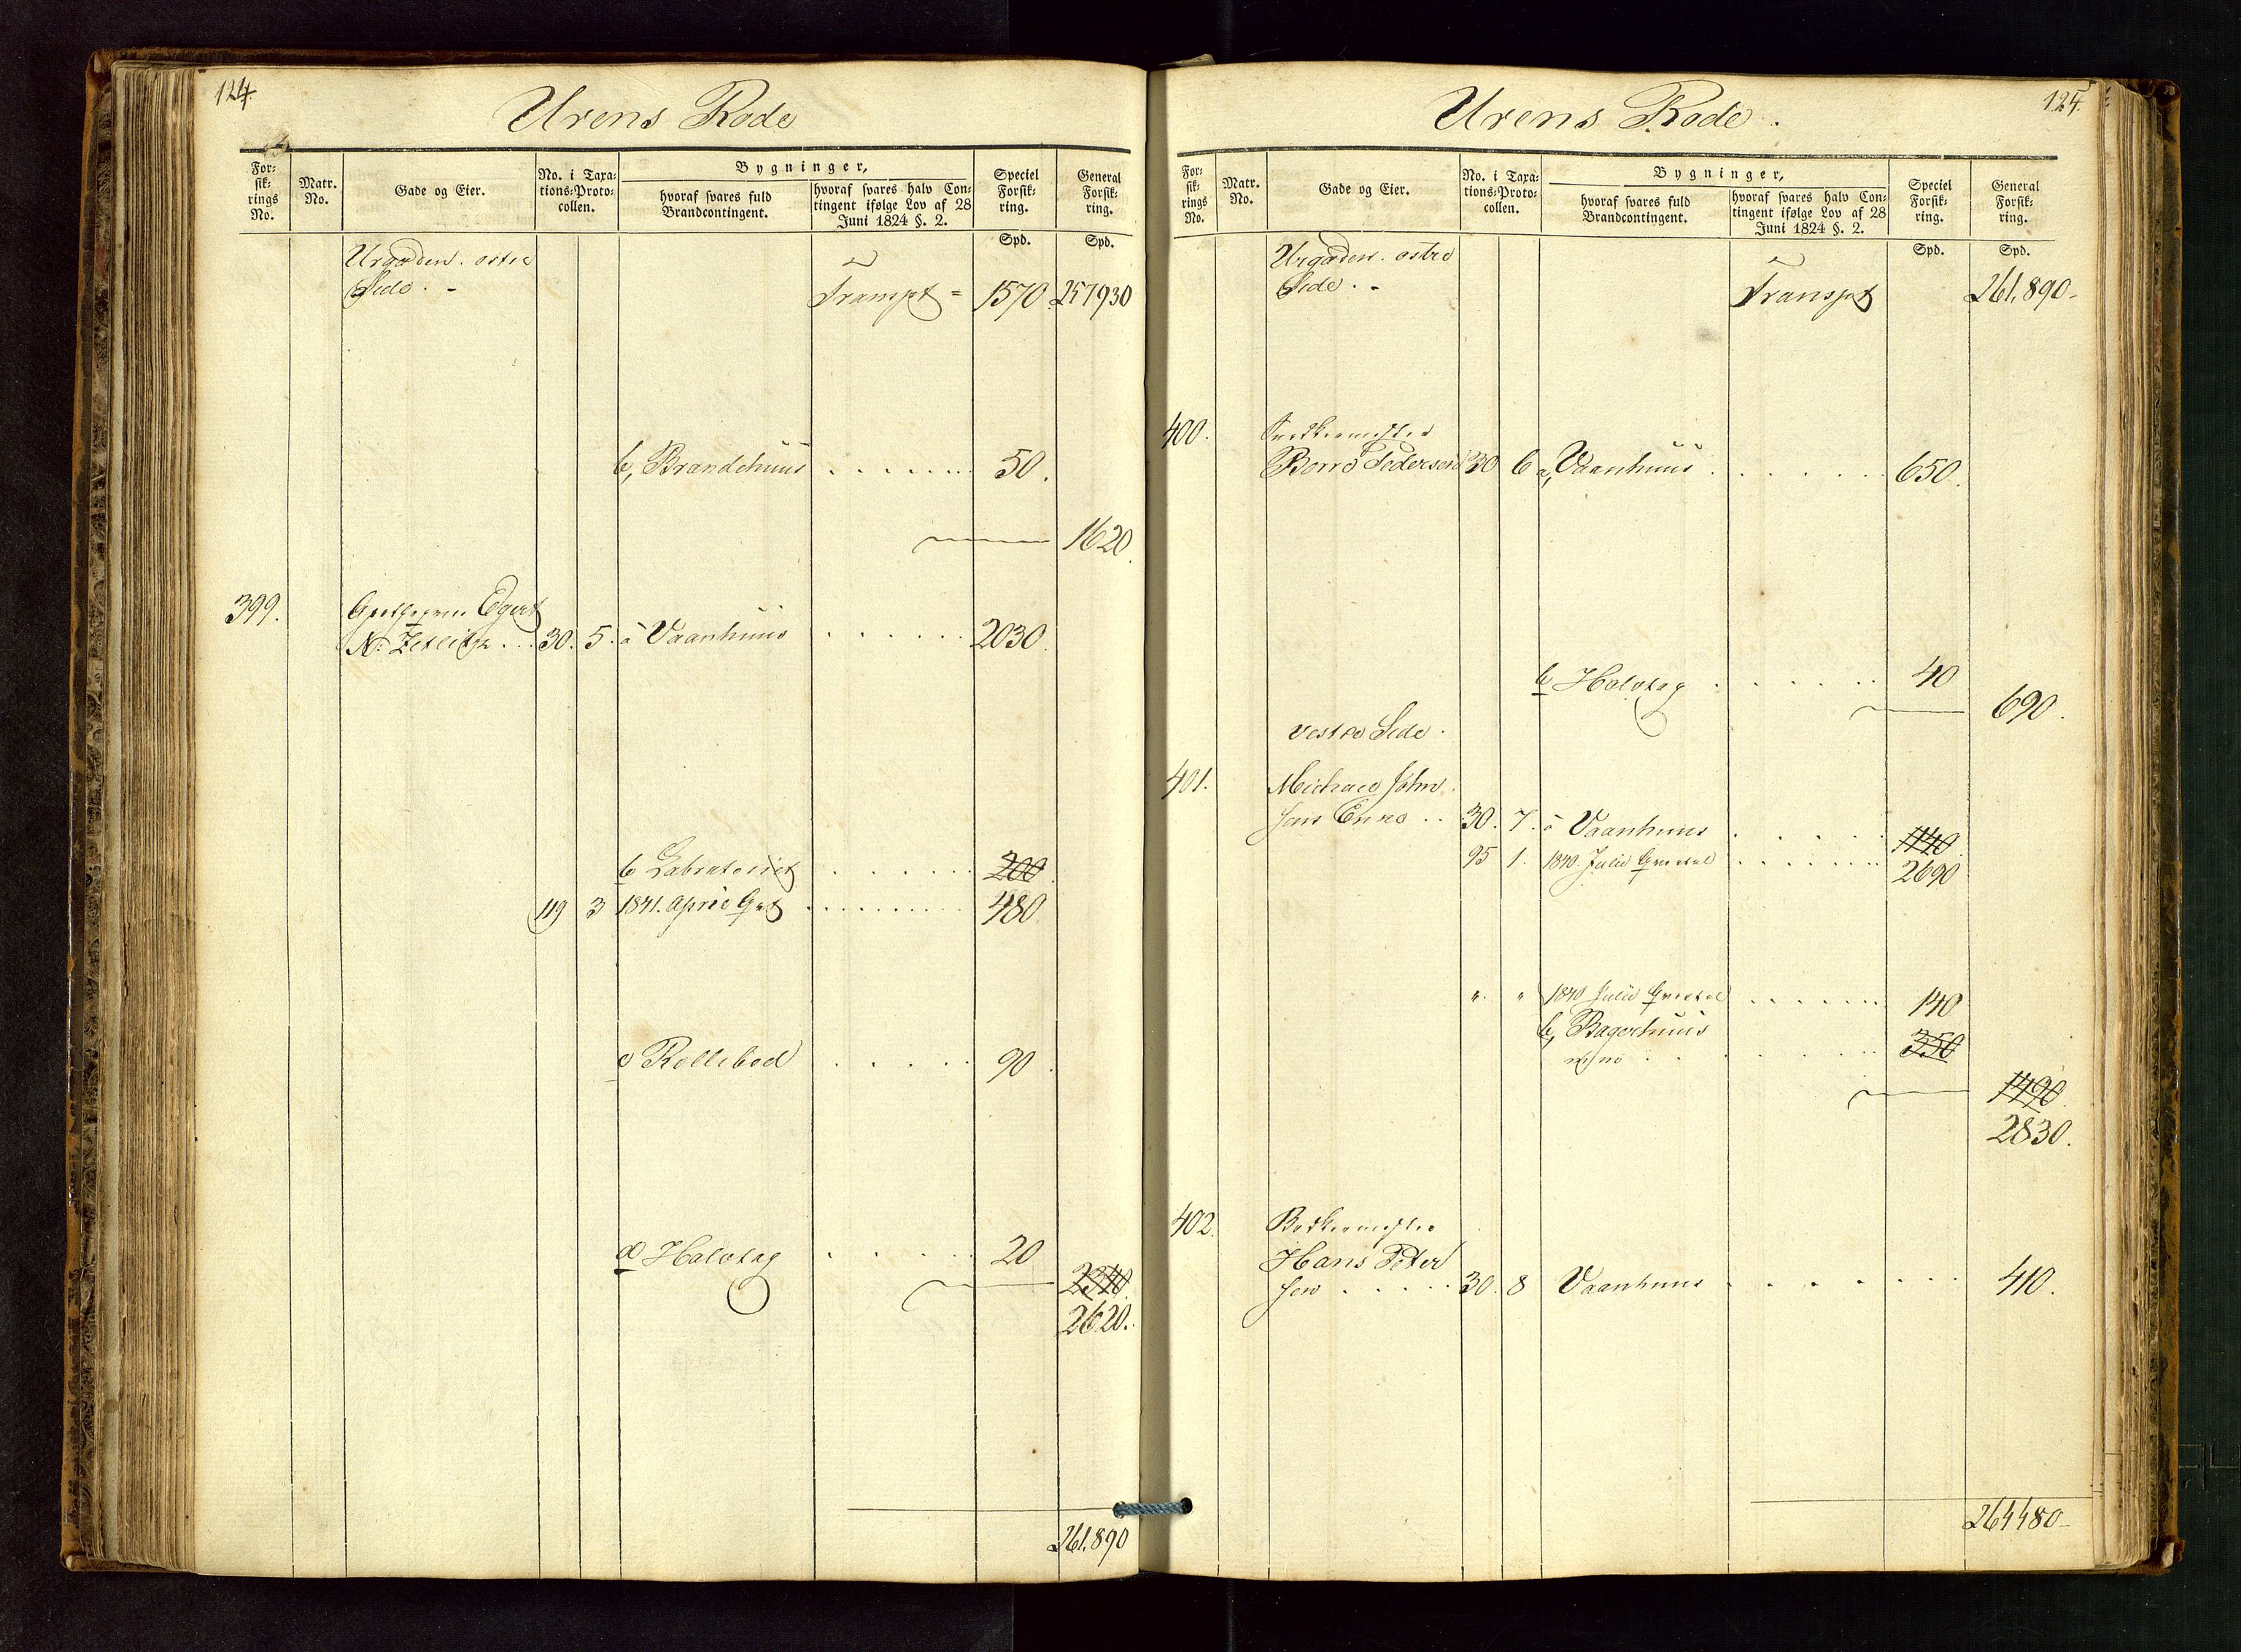 124.
Urens Rode
For-
sik-
rings
No.
Matr.
No.
Gade og Eier.
No. i Taxa-
tions-Proto-
collen.
Bygninger,
hvoraf svares fuld
Brandcontingent.
hvoraf svares halv Con-
tingent ifølge Lov af 28
Juni 1824 §. 2.
Speciel
Forsik-
ring.
General
Forsik-
ring.
Spd.
Spd.
Urgaden. østre
Side. -
Transpt = 1570. 257930
b, Brandehuus . . . . . . . 50.
1620.
399. Egert
N. Zetlitz . . . 30. 5. a Vaanhuus . . . . . . 2030.
b Labratoriet . . . . . . 200
119 3 1841. April Qvt . . . . . . . . . 480.
c Rollebod . . . . . 90.
d Halvtag . . . . . 20
2340.
2620.
261.890
125.
Urens Rode.
For-
sik-
rings
No.
Matr.
No.
Gade og Eier.
No. i Taxa-
tions-Proto-
collen.
Bygninger,
hvoraf svares fuld
Brandcontingent.
hvoraf svares halv Con-
tingent ifølge Lov af 28
Juni 1824 §. 2.
Speciel
Forsik-
ring.
General
Forsik-
ring.
Spd.
Spd.
Urgaden. østre
Side. -
Transpt 261.890-
400. Snedkermester
Børre Pedersen 30 6 a, Vaanhuus . . . . . . 650.
b Halvtag . . . . . . 40
690.
vestre Side.
401. Michael John
sens Enke . . 30. 7. a Vaanhuus . . . . . 1140.
95 1. 1840. Julii Qvartal . . . . . . . 2690
". " 1840 Julii Qvartal . . . . . . . 140
b, Bagerhuus
350
1490.
2830.
402. Bødkermester
Hans Peter
sen . . . . . 30. 8 Vaanhuus . . . . . . . 410.
264480-